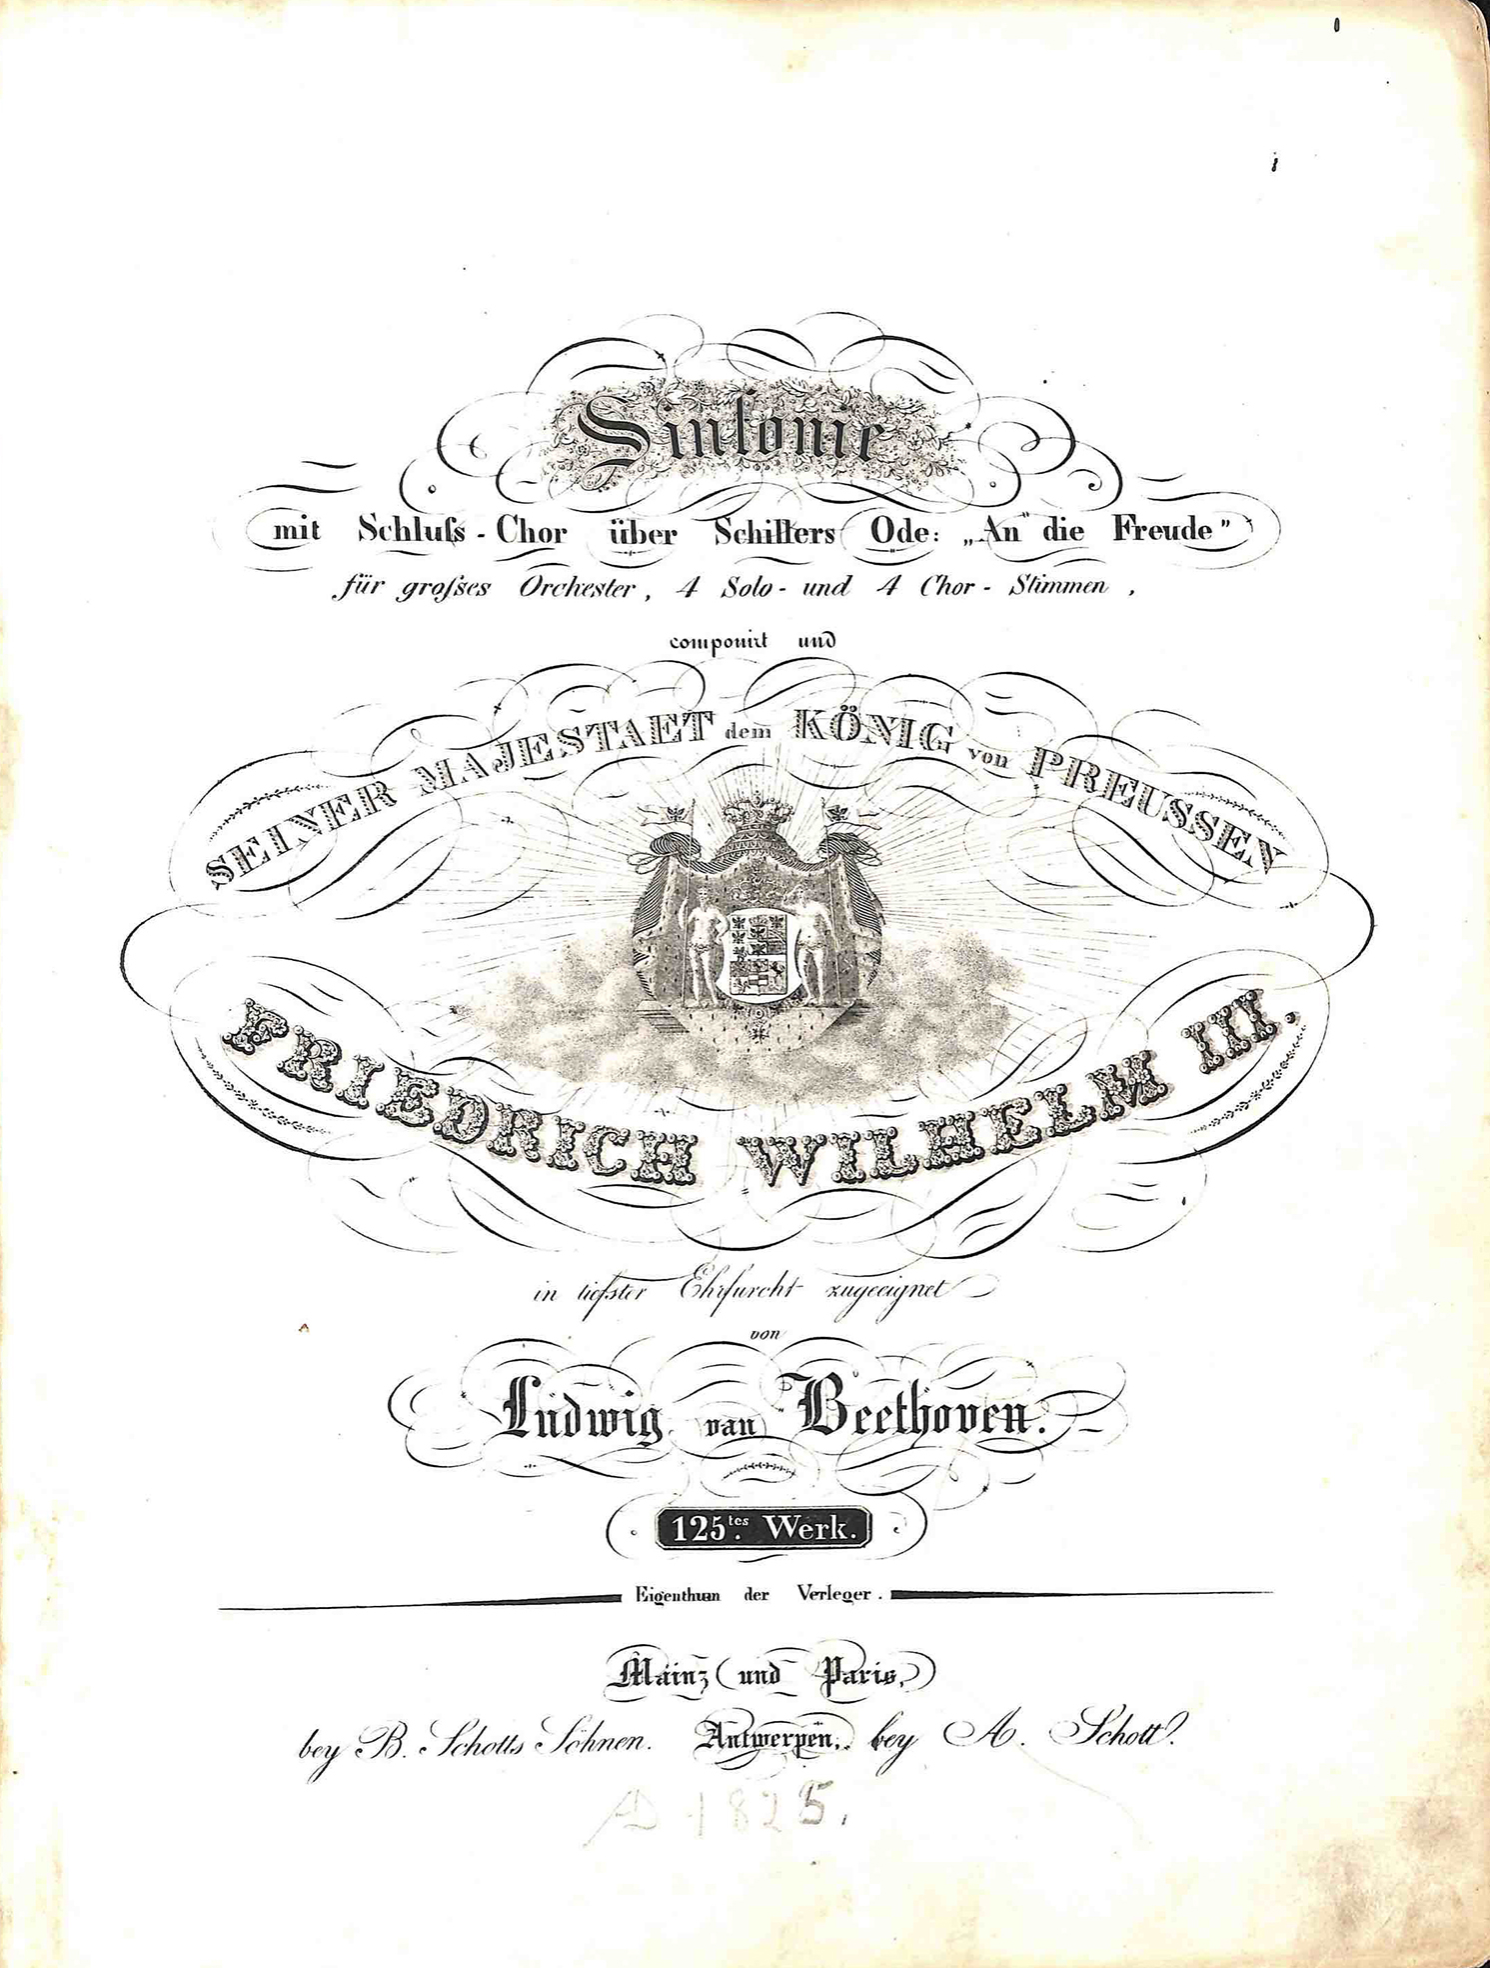 Sinfonie
mit Schluſs-Chor über Schillers Ode: „An die Freude”
für groſses Orchester, 4 Solo- und 4 Chor-Stimmen,
componirt und
SEINER MAJESTAET dem KÖNIG von PREUSSEN
FRIEDRICH WILHELM III.
in tiefster Ehrfurcht zugeeignet
von
Ludwig van Beethoven.
125tes. Werk.
Eigenthum der Verleger.
Mainz und Paris,
bey B. Schotts Söhnen. Antwerpen, bey A. Schott.
AD 1825.